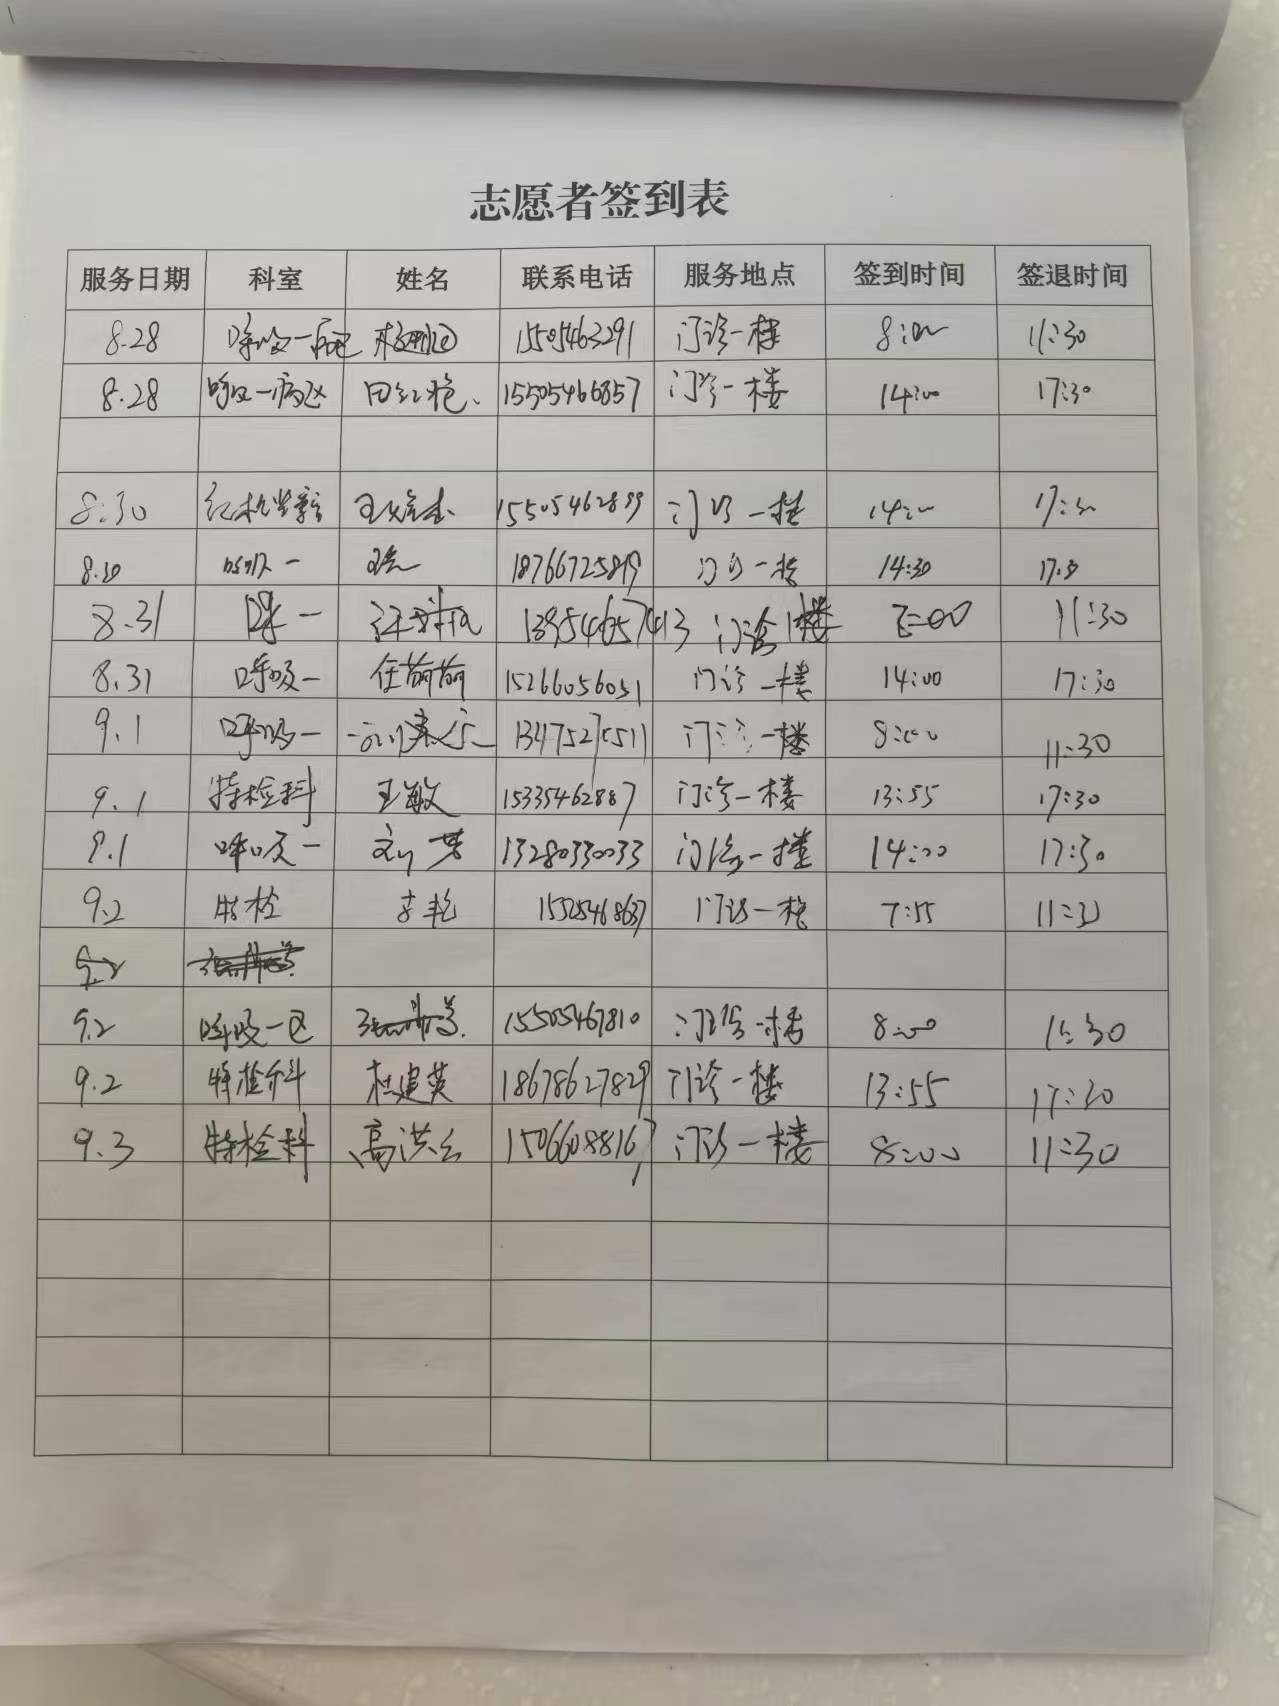 志愿者签到表
服务日期 科室 姓名 联系电话 服务地点 签到时间 签退时间
8.28 呼吸一病区 15505463291 门诊一楼 8:00 11:30
8.28 呼吸一病区 田红艳 15505466857 门诊一楼 14:00 17:30
8.30 15505462899 门诊一楼 14:00 17:30
8.30 呼吸一 18766725819 门诊一楼 14:30 17:30
8.31 呼一 13954657413 门诊1楼 11:30
8.31 呼吸一 任萌萌 15266056051 门诊一楼 14:00 17:30
9.1 呼吸一 门诊一楼 8:00 11:30
9.1 特检科 王敏 15335462887 门诊一楼 13:55 17:30
9.1 呼吸一 刘芳 13280330033 门诊一楼 14:00 17:30
9.2 特检 李艳 门诊一楼 7:55 11:31
9.2
9.2 呼吸一区 15505467810 门诊一楼 8:00 11:30
9.2 特检科 杜建英 18678627829 门诊一楼 13:55 17:30
9.3 特检科 高洪云 15066088167 门诊一楼 8:00 11:30